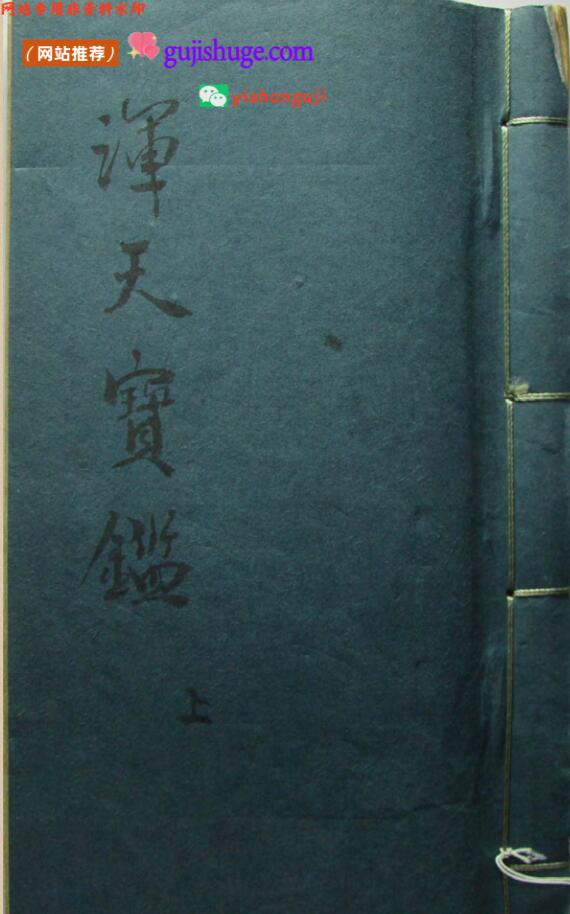 网站专用非资料水印
（网站推荐） gujishuge.com
yishanguji
渾天寶鑑
上